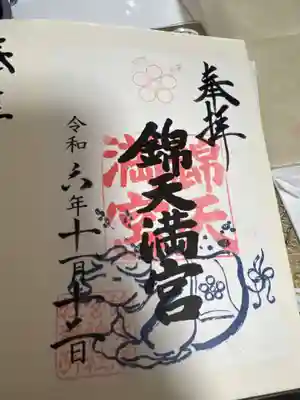 奉拝
錦天満宮
令和六年十一月十二日
錦天
満宮